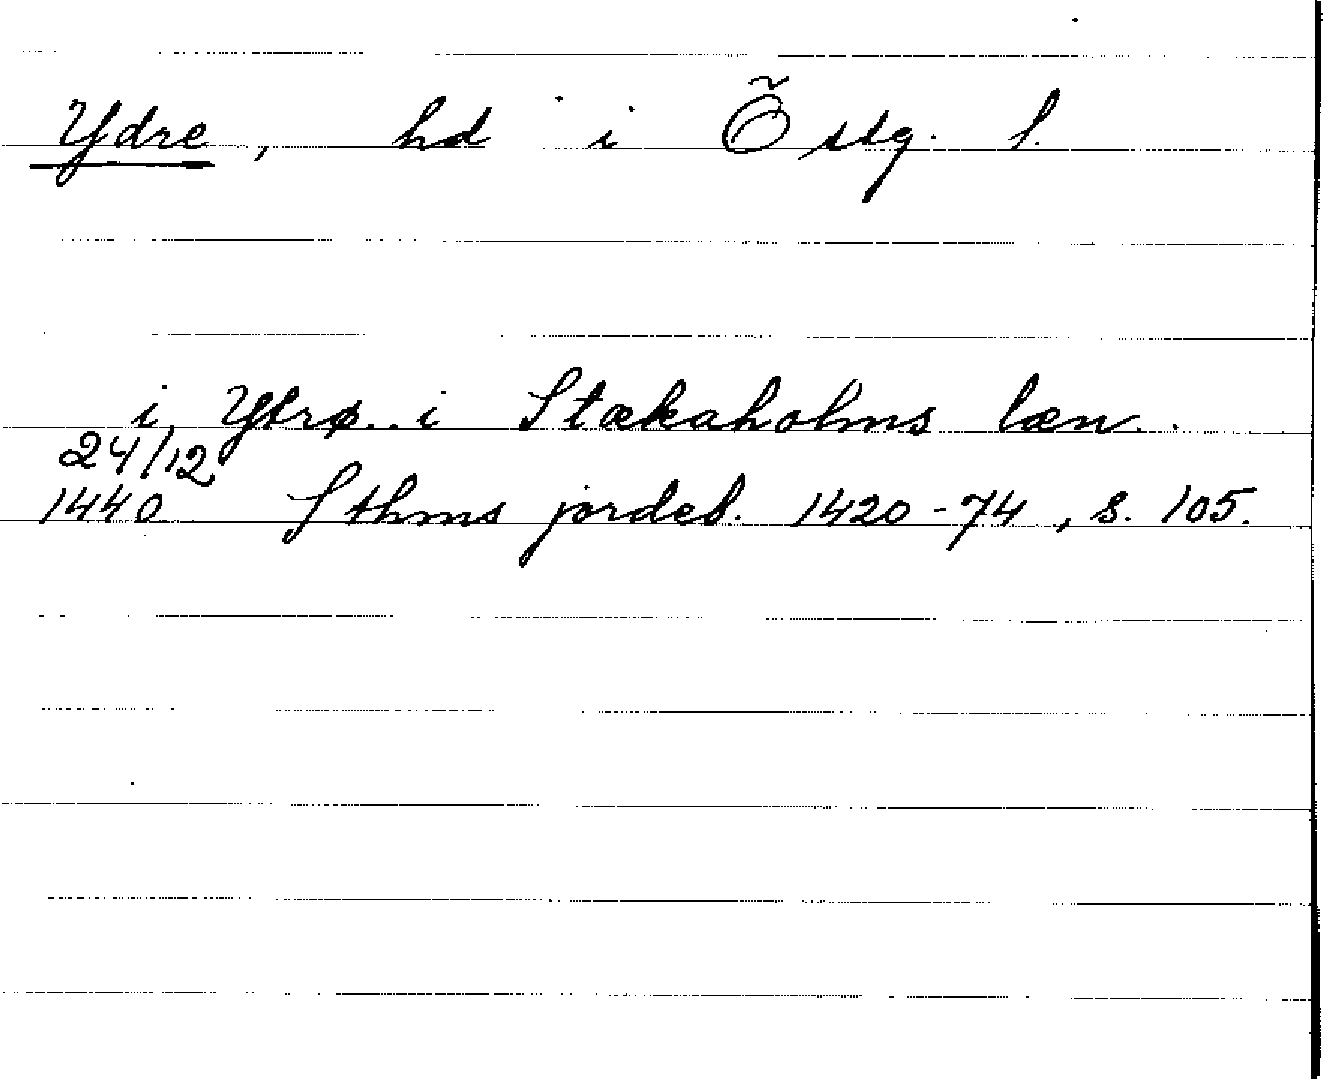 Ydre, hd i Östg. l.
i Ytrø.. i Stækaholms læn..
24/12
1440 Sthms jordeb. 1420-74, s. 105.